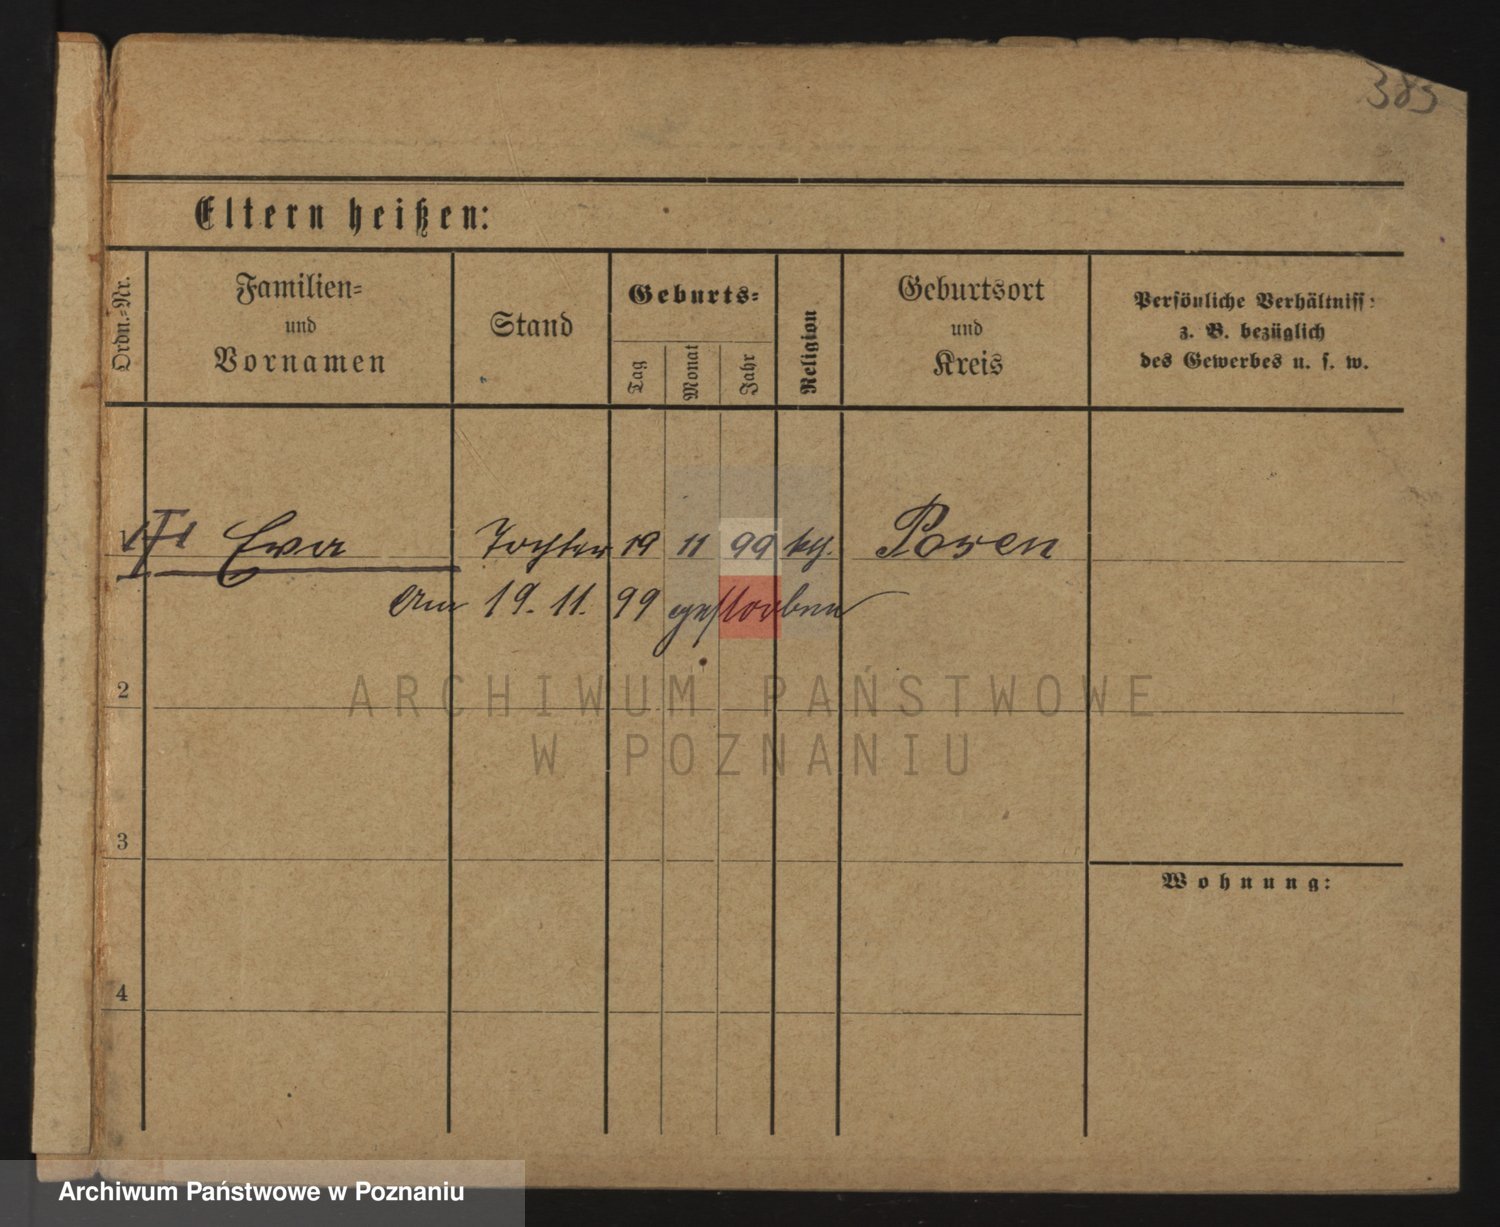 385
Eltern heißen:
Ordn.-Nr.
Familien-
und
Vornamen
Stand
Geburts-
Tag
Monat
Jahr
Religion
Geburtsort
und
Kreis
Persönliche Verhältniss:
z. B. bezüglich
des Gewerbes u. s. w.
1 Eva Tochter 19 11 99 kth. Posen
Am 19. 11. 99 gestorben
2
ARCHIWUM PAŃSTWOWE
W POZNANIU
3
Wohnung:
4
Archiwum Państwowe w Poznaniu